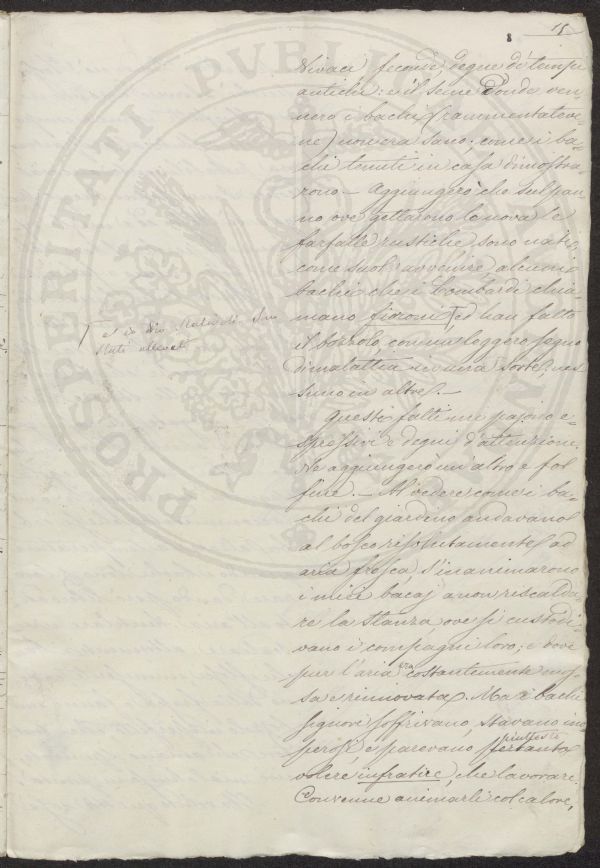 15
8
Vivaci feconde, degne de' tempi
antichi: e il seme donde ven-
nero i bachi (rammentateve-
ne) non era sano; come i ba-
chi tenuti in casa dimostra-
rono — Aggiungerò che sul pan-
no ove gettarono le nova le
farfalle rustiche sono nati,
come suol avvenire alcuni
bachi che i Lombardi chia-
mano fioroni, ed han fatto
il bozzolo con un leggero segno
di malattia
in altre. —
Questi fatti mi pajono e-
spressivi e degni d'attenzione.
Ne aggiungerò un altro e fo
fine. — Al vedere come i ba-
chi del giardino andavano
al bosco risolutamente ad
aria fresca, s'inanimarono
i miei bacaj a non riscalda-
re la stanza ove si custodi-
vano i compagni loro; e dove
pur l'aria era costantemente mos-
sa e rinnovata. Ma i bachi
signori soffrivano, stavano ino-
perosi, e parevano piuttosto
volere infratire, che lavorare.
Convenne animarli col calore,
stati allevati
PROSPERITATI PUBLICAE